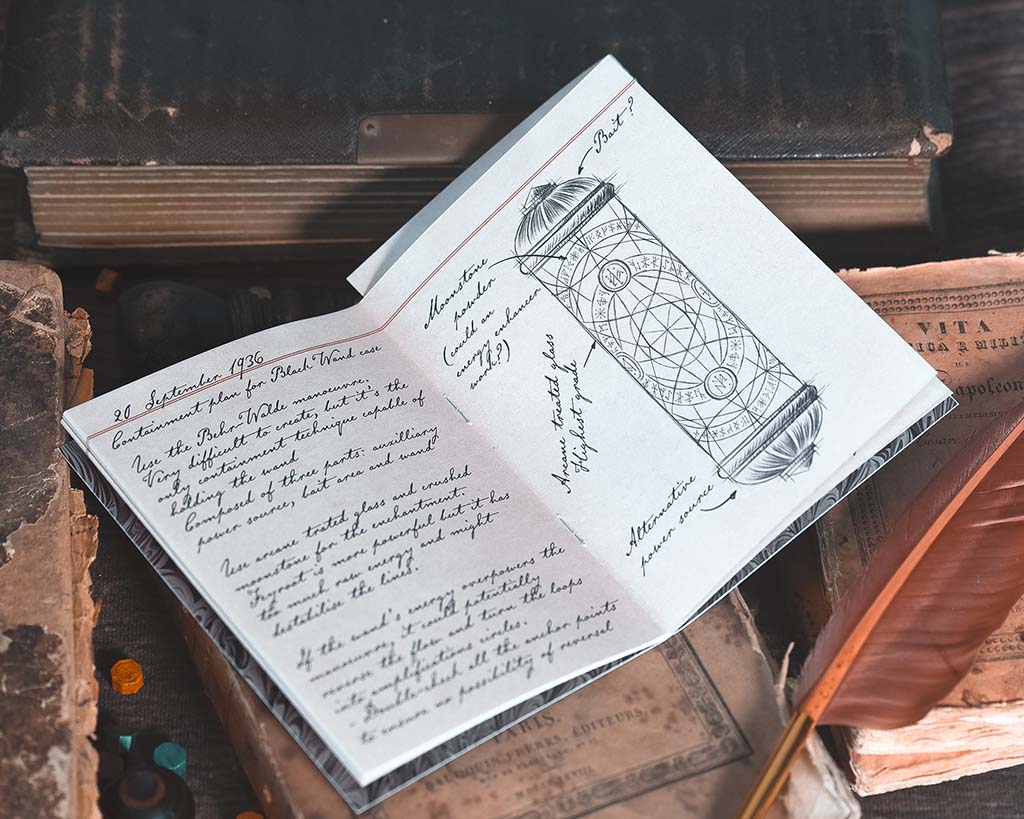 20 September 1936
Containment plan for Black Wand case
Use the Behr-Walde manoeuvre;
Very difficult to create, but it's the
only containment technique capable of
holding the wand
Composed of three parts: auxilliary
power source, bait area and wand
Use arcane trated glass and crushed
moonstone for the enchantment.
Feyroot is more powerful but it has
too much raw energy and might
destabilise the lines.
If the wand's energy overpowers the
manoeuvre, it could potentially
reverse the flow and turn the loops
into amplifications circles.
- Double-check all the anchor points
to ensure no possibility of reversal
Bait?
Moonstone
powder
(could an
energy enhancer
work?)
Arcane treated glass
Highest grade
Alternative
power source
VITA
Napoleon
PARIS,
ÉDITEURS,